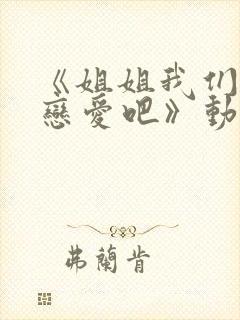 《姐姐我们
戀愛吧》動
弗蘭肯